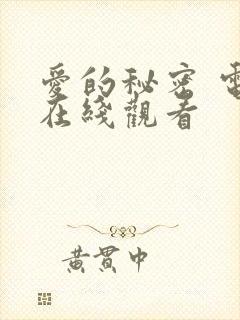 愛的秘密 電
在綫觀看
黃貫中